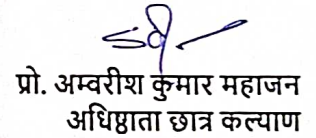 प्रो. अम्वरीश कुंमार महाजन
अधिष्ठाता छात्र कल्याण